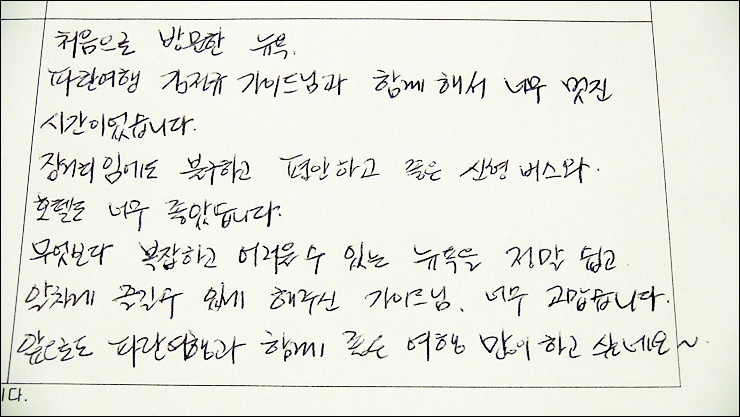 처음으로 방문한 뉴욕.
파란여행 김진규 가이드님과 함께 해서 너무 멋진
시간이었습니다.
장거리 임에도 불구하고 편안하고 좋은 신형 버스와
호텔도 너무 좋았습니다.
무엇보다 복잡하고 어려울수 있는 뉴욕을 정말 쉽고
알차게 즐길수 있게 해주신 가이드님, 너무 고맙습니다.
앞으로도 파란여행과 함께 좋은 여행 많이 하고 싶네요~.
니다.